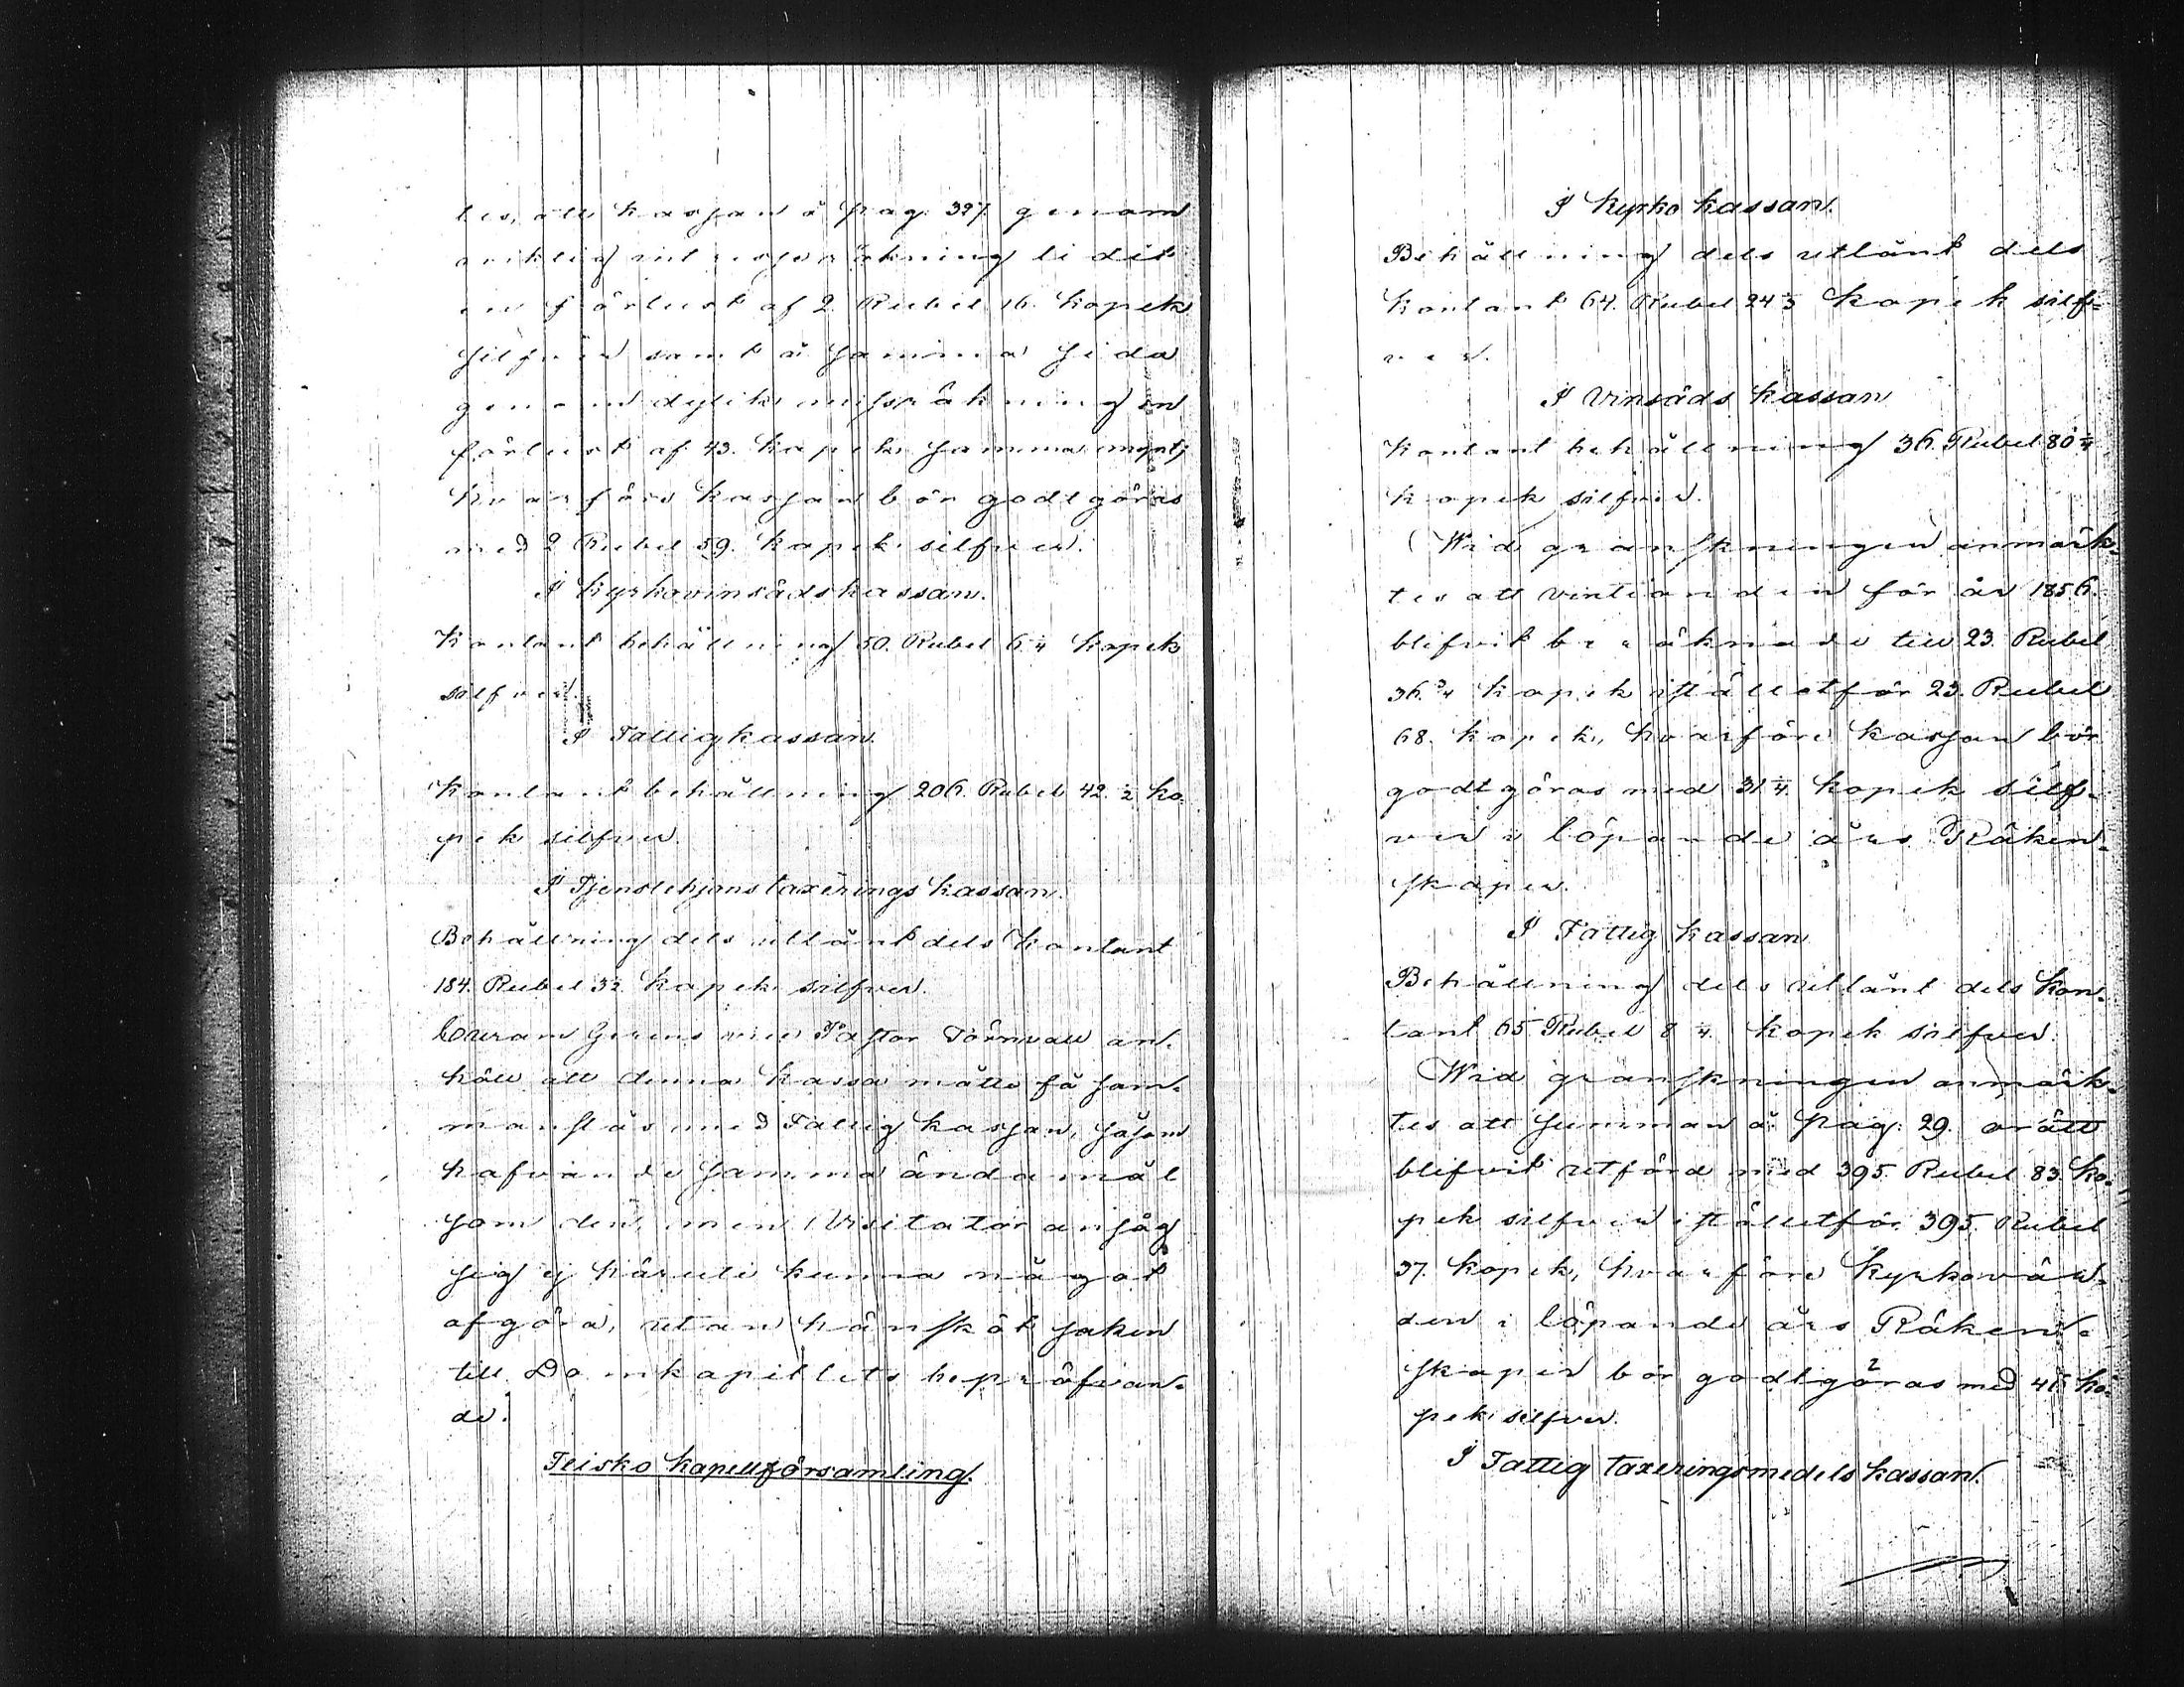 tes, att kassan å pag: 327. genom
oriktig missräkning lidit
en förlust af 2. Rubel 16. kopek
silfver samt å samma sida
genom dylik missräkning en
förlust af 43. kopek samma mynt;
hvarföre kassan bör godtgöras
med 2 Rubel 59. kopek silfver.
I Kyrkovinsädskassan.
Kontant behållning 50. Rubel 6 1/4 kopek
silfver.
I Fattigkassan.
Kontant behållning 206. Rubel 42. 1/2 ko-
pek silfver.
I Tjenstehjons taxerings kassan.
Behållning dels utlånt dels kontant
184. Rubel 32. kopek silfver.
Curam Gerens Pastor Törnvall an-
höll att denna kassa måtte få sam-
manslås med Fattig kassan, såsom
hafvande samma ändamål
som den, men Visitator ansåg
sig ej häruti kunna något
afgöra, utan hänsköt saken
till Domkapitlets bepröfvan-
de.
Teisko Kapellförsamling.
I Kyrko kassan.
Behållning dels utlånt dels
kontant 64. Rubel 24 kopek silf-
ver.
I Vinsäds kassan
Kontant behållning 36. Rubel 80 1/4
kopek silfver.
Wid granskningen anmärk-
tes att vintionden för år 1856.
blifvit beräknade till 23. Rubel
36. 3/4 kopek istället för 23. Rubel
68. kopek, hvarföre kassan bör
godtgöras med 31 1/4 kopek silf-
ver i löpande års Räken-
skaper.
I Fattig kassan
Behållning dels utlånt dels kon-
tant 65 Rubel 8 1/4 kopek silfver.
Wid granskningen anmärk-
tes att summan å pag: 29. orätt
blifvit utförd med 395. Rubel 83. ko-
pek silfver istället för 395. Rubel
37. kopek, hvarföre Kyrkovär-
den i löpande års Räken-
skaper bör godtgöras med 46 ko-
pek silfver.
I Fattig taxeringsmedels kassan.